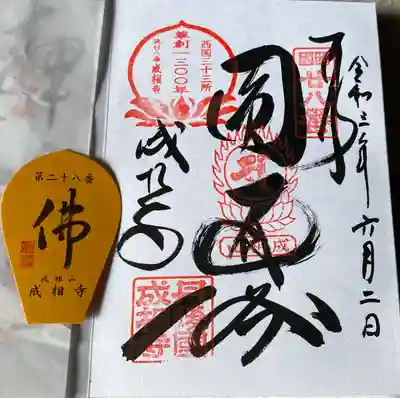 令和三年六月二日
奉拝
西国廿八番
圓通閣
西国三十三所
草創一三〇〇年
第廿八番成相寺
成相寺
丹後国成相寺
第二十八番
佛
成相山
成相寺